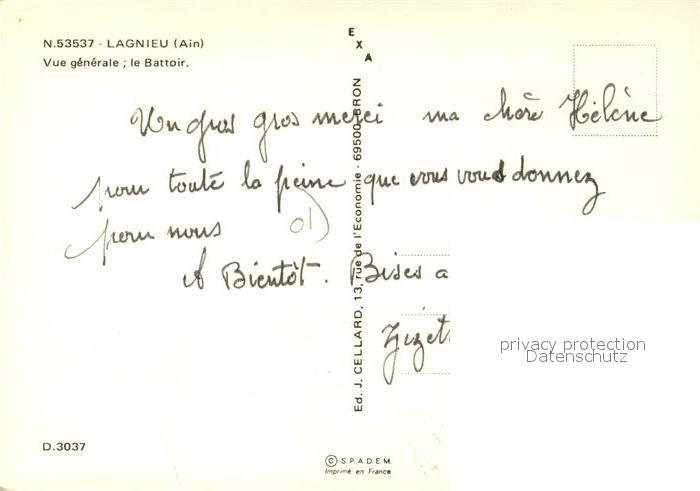 N.53537 - LAGNIEU (Ain)
Vue générale ; le Battoir.
E
X
A
Un gros gros merci ma chère Hélène
pour toute la peine que vous vous donnez
pour nous
A Bientôt. Bises a
Ed. J. CELLARD, 13, rue de l'Economie - 69500 BRON
privacy protection
Datenschutz
D.3037
© S.P.A.D.E.M.
Imprimé en France